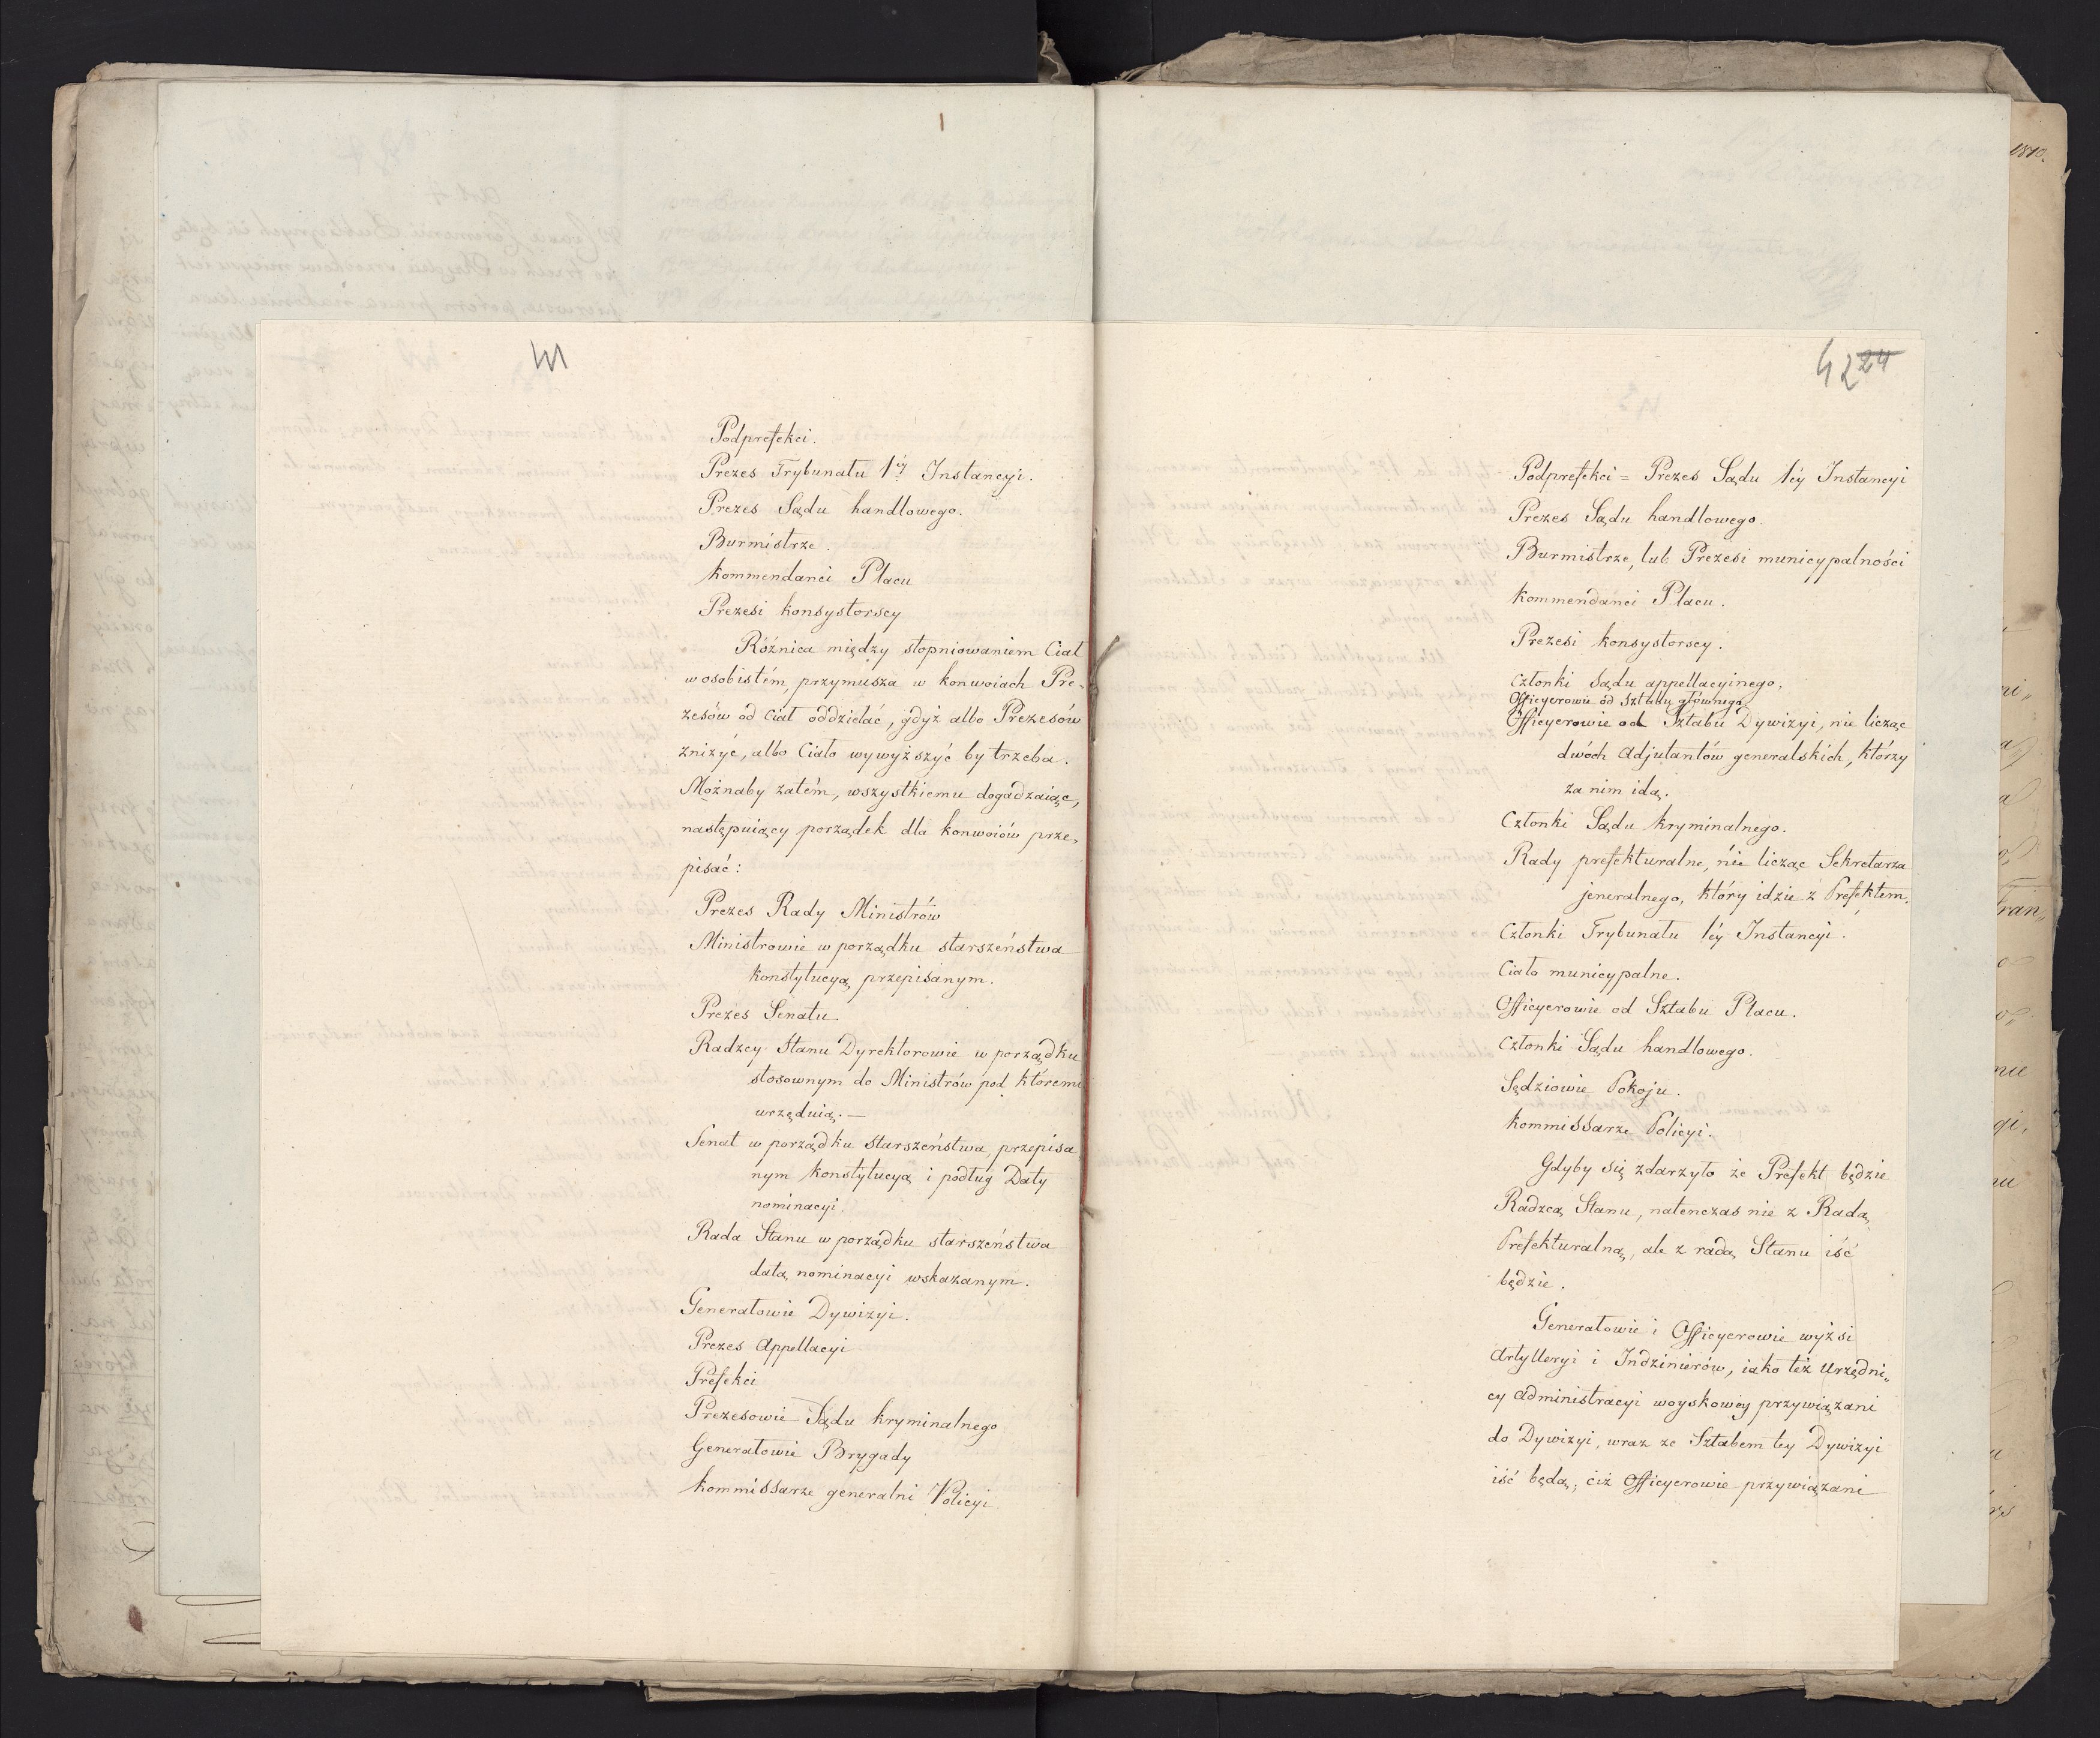 41
Podprefekci.
Prezes Trybunału 1éy Instancyi.
Prezes Sądu handlowego.
Burmistrze.
Kommendanci Placu
Prezesi konsystorscy
Róźnica między stopniowaniem Ciał
w osobistém, przymusza w konwoiach Pre-
zesów od Ciał oddzielać, gdyż albo Prezesów
zniżyć, albo Ciało wywyższyć by trzeba.
Możnaby zatém, wszystkiemu dogadzaiąc,
następuiący porządek dla konwoiów prze-
pisać:
Prezes Rady Ministrów
Ministrowie w porządku starszeństwa
konstytucyą przepisanym.
Prezes Senatu
Radzcy Stanu Dyrektorowie w porządku
stosownym do Ministrów pod któremi
urzęduią.—
Senat w porządku starszeństwa, przepisa
nym konstytucyą i podług Daty
nominacyi.
Rada Stanu w porządku starszeństwa
datą nominacyi wskazanym.
Generałowie Dywizyi.
Prezes Appellacyi
Prefekci
Prezesowie Sądu kryminalnego
Generałowie Brygady
Kommissarze generalni Policyi
42 24
Podprefekci = Prezes Sądu 1éy Instancyi
Prezes Sądu handlowego.
Burmistrze, lub Prezesi municypalności
Kommendanci Placu.
Prezesi konsystorscy.
Członki Sądu appellacyinego,
Officyerowie od Sztabu głównego
Officyerowie od Sztabu Dywizyi, nie licząc
dwóch Adjutantów generalskich, którzy
za nim idą.
Członki Sądu kryminalnego.
Rady prefekturalne, nie licząc Sekretarza
jeneralnego, który idzie z Prefektem.
Członki Trybunału 1éy Instancyi.
Ciało municypalne.
Officyerowie od Sztabu Placu.
Członki Sądu handlowego.
Sędziowie Pokoju.
Kommissarze Policyi.
Gdyby się zdarzyło że Prefekt będzie
Radzcą Stanu, natenczas nie z Radą
Prefekturalną, ale z radą Stanu iść
będzie.
Generałowie i Officyerowie wyżsi
Artylleryi i Indzinierów, iako też Urzędni„
cy Administracyi woyskowéy przywiązani
do Dywizyi, wraz ze Sztabem téy Dywizyi
iść będą; ciż Officyerowie przywiązani
1810.